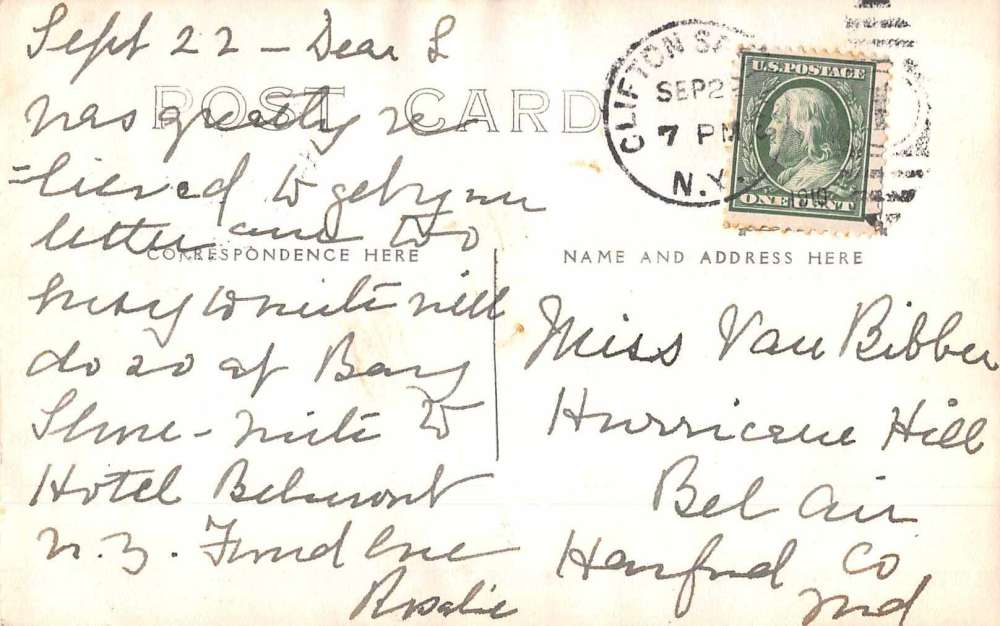 Sept 22 - Dear L
POST CARD
was greatly re
=lieved to get your
letter am too
CORRESPONDENCE HERE
busy to write will
do so at Bay
Shore - write to
Hotel Belmont
N.Y. Fond love
Rosalie
CLIFTON S
SEP 2
7 PM
N.Y.
1910
U.S. POSTAGE
ONE CENT
NAME AND ADDRESS HERE
Miss Van Bibber
Hurricane Hill
Bel Air
Harford Co
Md